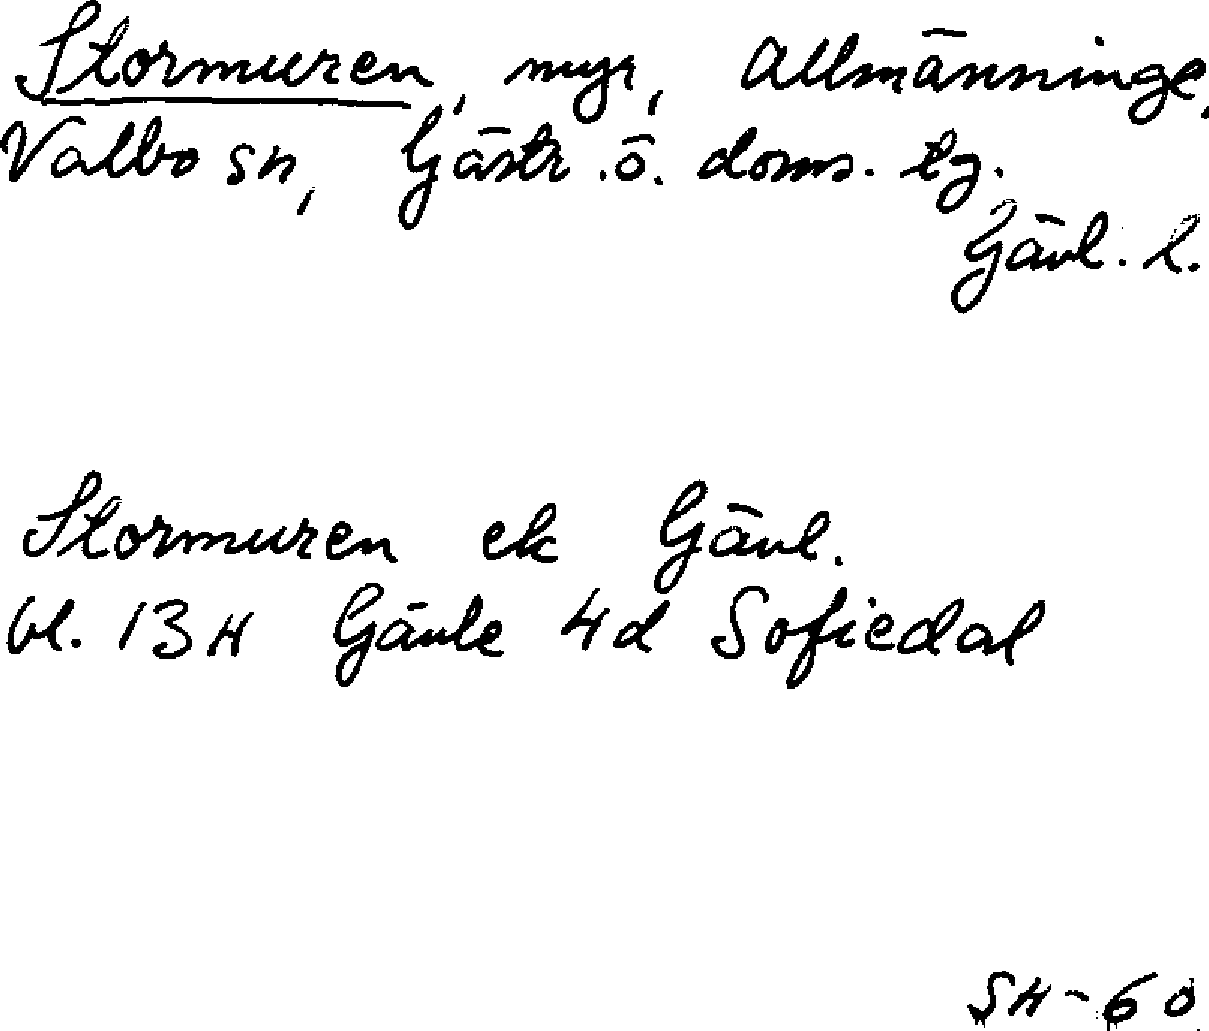 Stormuren, myr, Allmänninge,
Valbo sn, Gästr. ö. doms. tg.
Gävl. l.
Stormuren ek Gävl.
bl. 13H Gävle 4d Sofiedal
SH-60